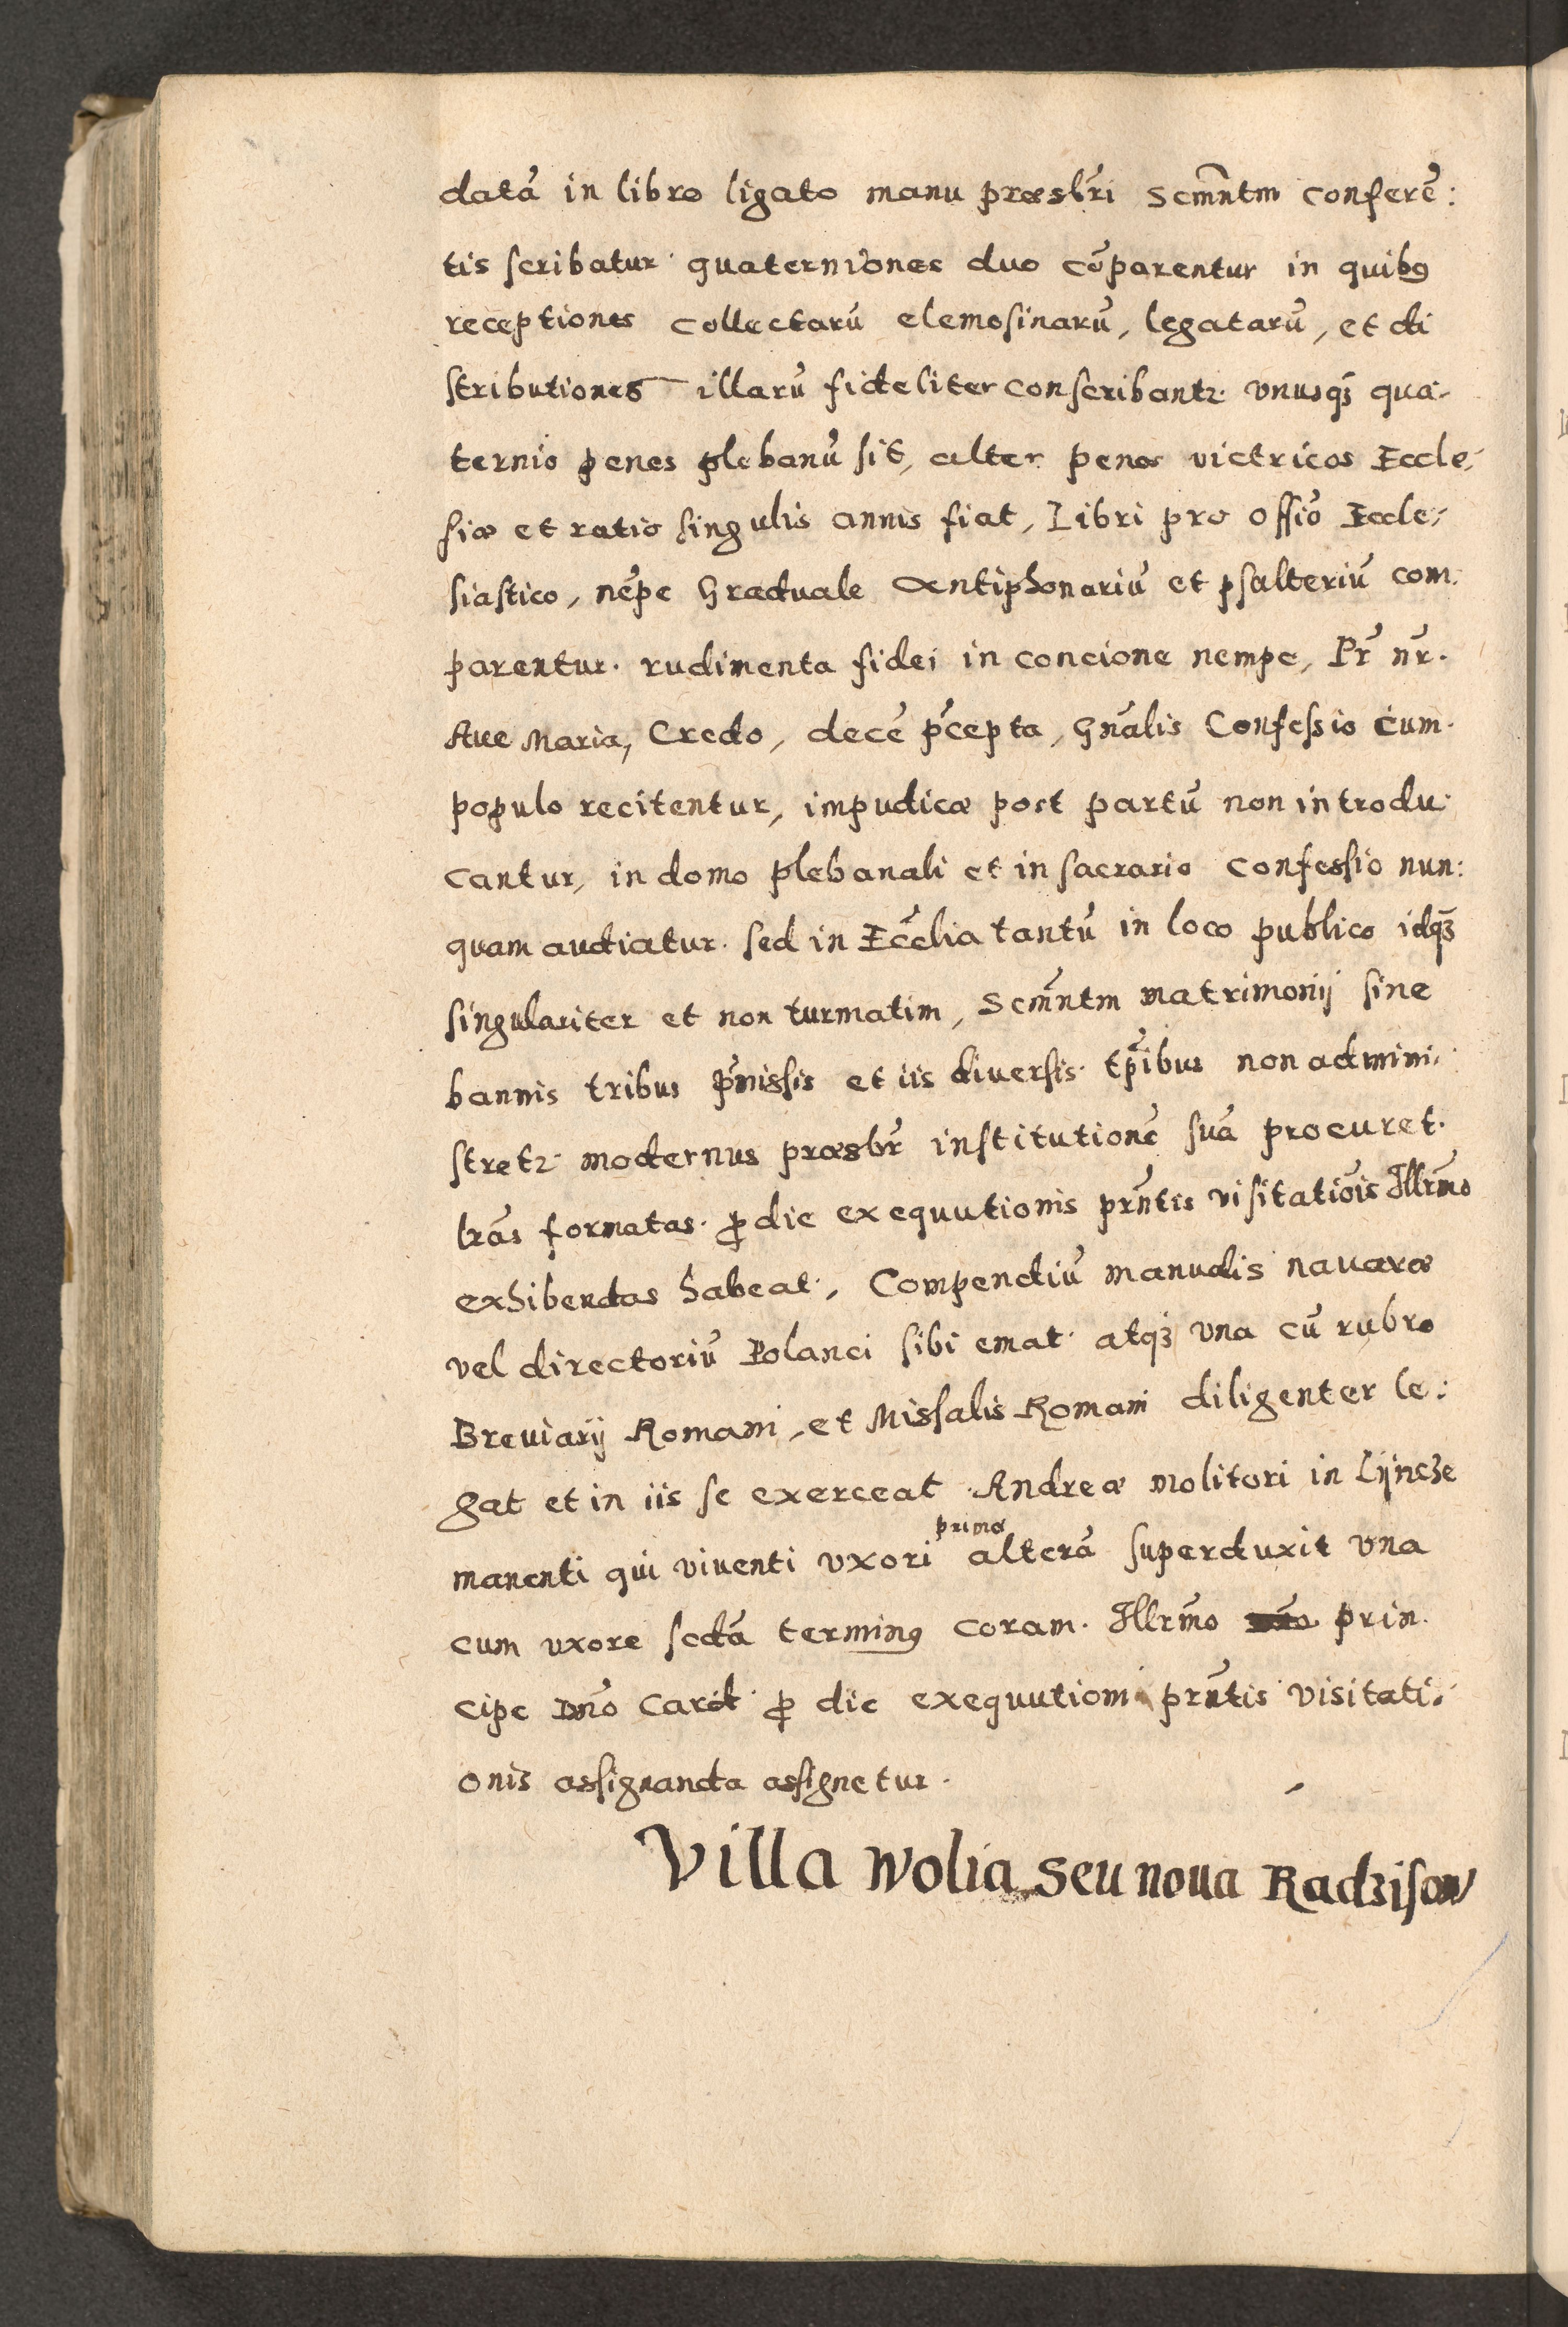 datã in libro ligato manu præsbr̃i Scm̃ntm conferẽ:
tis scribatur quaterniones duo cõparentur in quibꝰ
receptiones collectarũ elemosinarũ, legatarũ, et di
stributiones illarũ fideliter conscribantr. vnusqꝫ qua-
ternio penes plebanũ sit, alter penes victricos Eccle-
siæ et ratio singulis annis fiat, Libri pro offiõ Eccle-
siastico, nẽpe Graduale Antiphonariũ et psalteriũ com:
parentur. rudimenta fidei in concione nempe, Pr̃ nr̃.
Aue Maria, Credo, decẽ p̃cepta, Gñalis Confessio cum
populo recitentur, impudicæ post partũ non introdu
cantur, in domo plebanali et in sacrario confessio nun:
quam audiatur. sed in Eccl̃ia tantũ in loco publico idqꝫ
singulariter et non turmatim, Scm̃ntm matrimonij sine
bannis tribus p̃missis et iis diuersis tp̃ibus non admini-
stretr modernus præsbr̃ institutionẽ suã procuret.
lr̃as formatas. ꝓ die exequutionis prñtis visitatiõis Illr̃mo
exhibendas habeat, Compendiũ manualis nauaræ
vel directoriũ Polanci sibi emat atqꝫ vna cũ rubro
Breuiarij Romani, et Missalis Romani diligenter le:
gat et in iis se exerceat. Andreæ molitori in Lijncze
manenti qui viuenti vxori primæ alterã superduxit vna
cum vxore scdã terminꝰ coram. Illr̃mo prin
cipe Dño Card ꝓ die exequutioni prñtis visitati-
onis assignanda assignetur.
Villa Wolia seu noua Radzisow